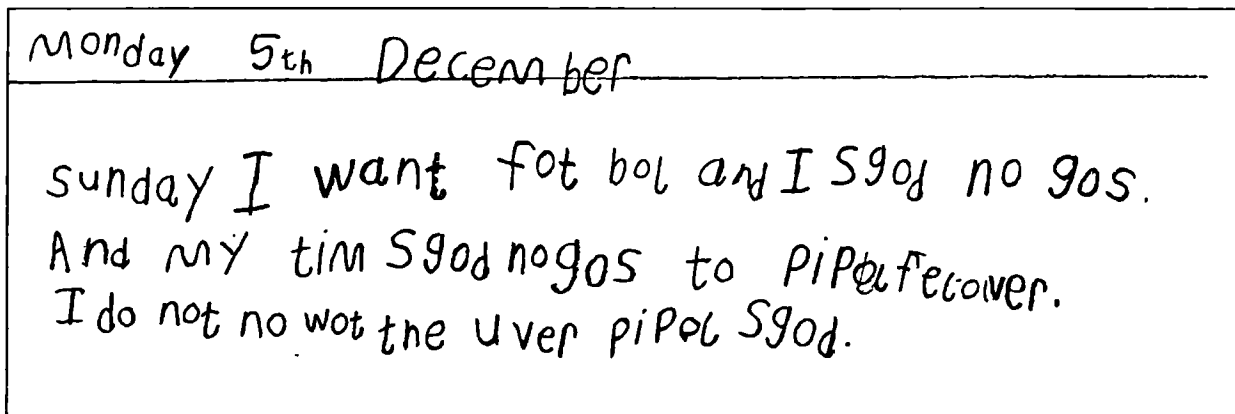 Monday 5th December
sunday I want fot bol and I Sgod no gos.
And My tim Sgod nogos to pipol
I do not no wot the uver pipol Sgod.